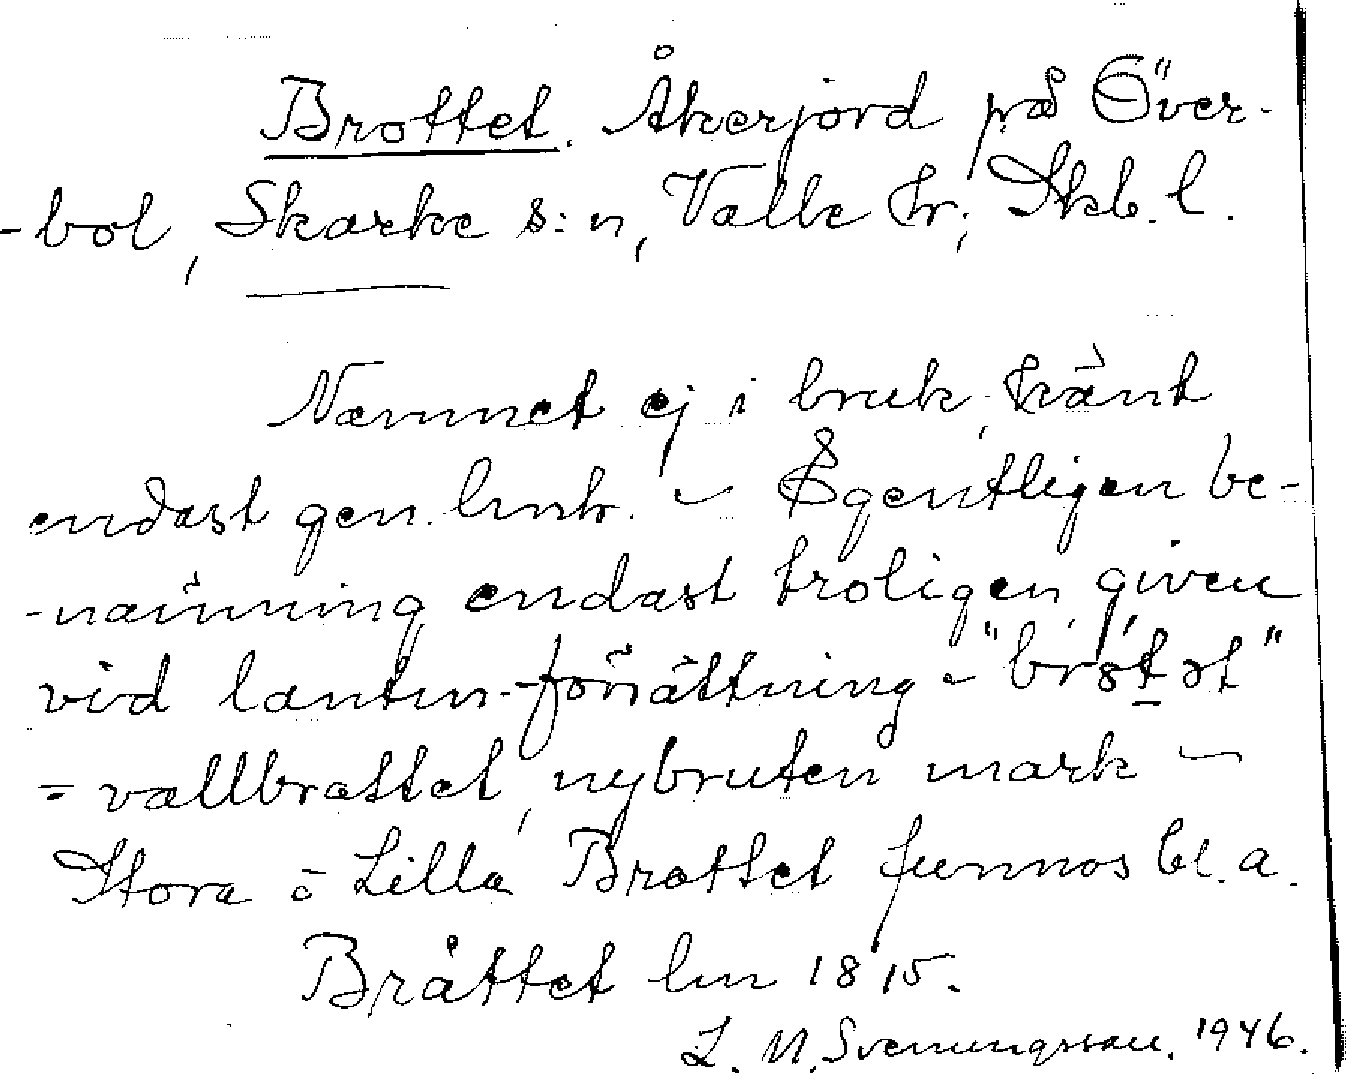 Brottet. Åkerjord på Över-
-bol, Skarke s:n, Valle hr, Skb. l.
Namnet ej i bruk, känt
endast gen. lmh. - Egentligen be-
-nämning endast troligen given
vid lantm.-förrättning - "brɷt̲ǝt"
= vallbrottet, nybruten mark -
Stora o Lilla Brottet funnos bl. a.
Bråttet lm 1815.
L. N. Svenungsson. 1946.